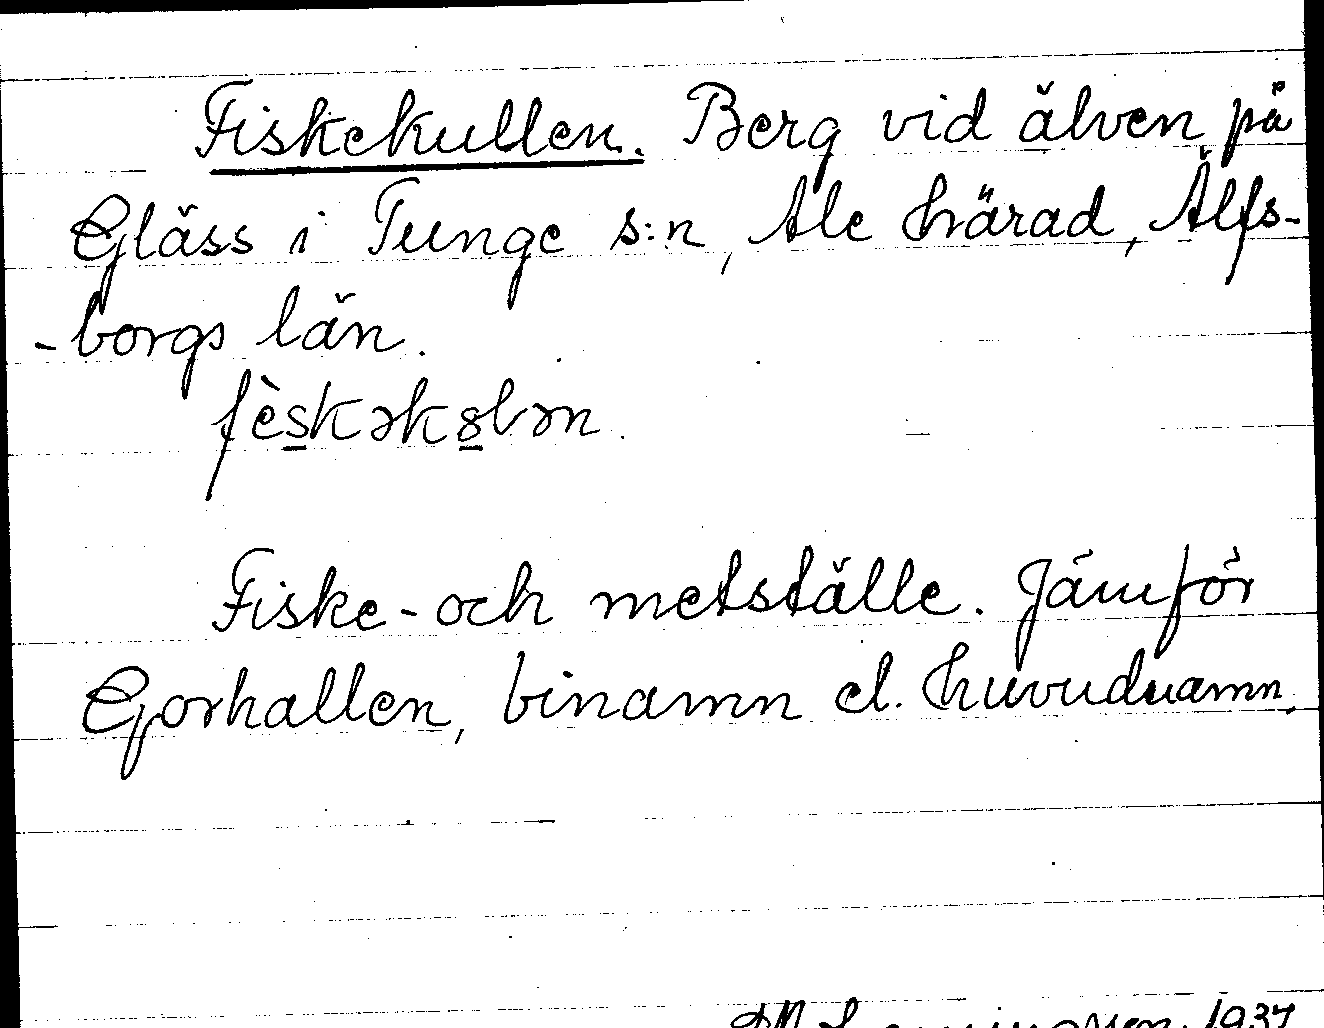 Fiskekullen. Berg vid älven på
Gläss i Tunge s:n, Ale härad, Älfs-
-borgs län.
fèskəkꝏlən.
Fiske- och metställe. Jämför
Gorhallen, binamn el. huvudnamn.
1937